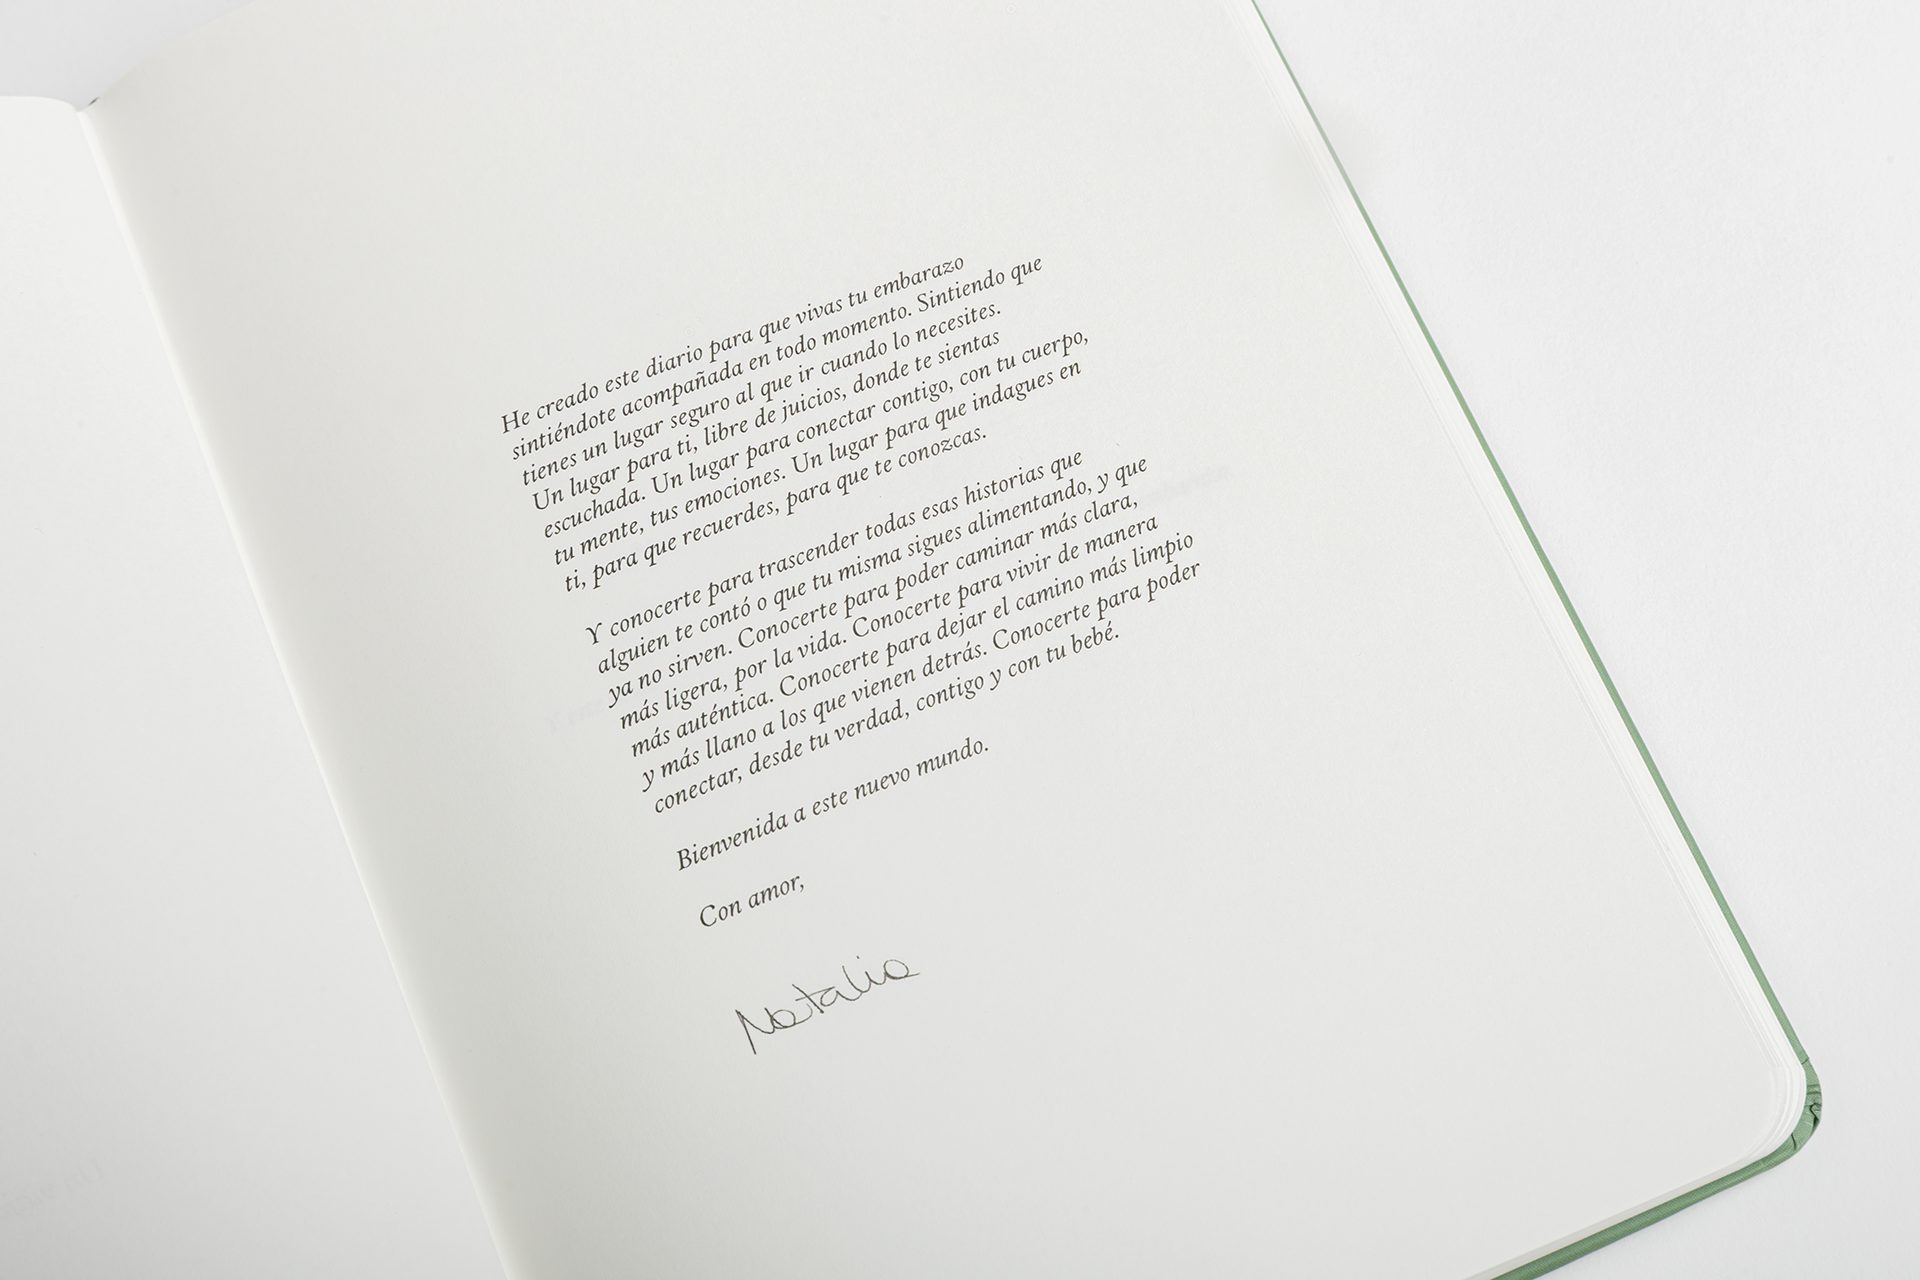 He creado este diario para que vivas tu embarazo
sintiéndote acompañada en todo momento. Sintiendo que
tienes un lugar seguro al que ir cuando lo necesites.
Un lugar para ti, libre de juicios, donde te sientas
escuchada. Un lugar para conectar contigo, con tu cuerpo,
tu mente, tus emociones. Un lugar para que indagues en
ti, para que recuerdes, para que te conozcas.
Y conocerte para trascender todas esas historias que
alguien te contó o que tu misma sigues alimentando, y que
ya no sirven. Conocerte para poder caminar más clara,
más ligera, por la vida. Conocerte para vivir de manera
más auténtica. Conocerte para dejar el camino más limpio
y más llano a los que vienen detrás. Conocerte para poder
conectar, desde tu verdad, contigo y con tu bebé.
Bienvenida a este nuevo mundo.
Con amor,
Natalia